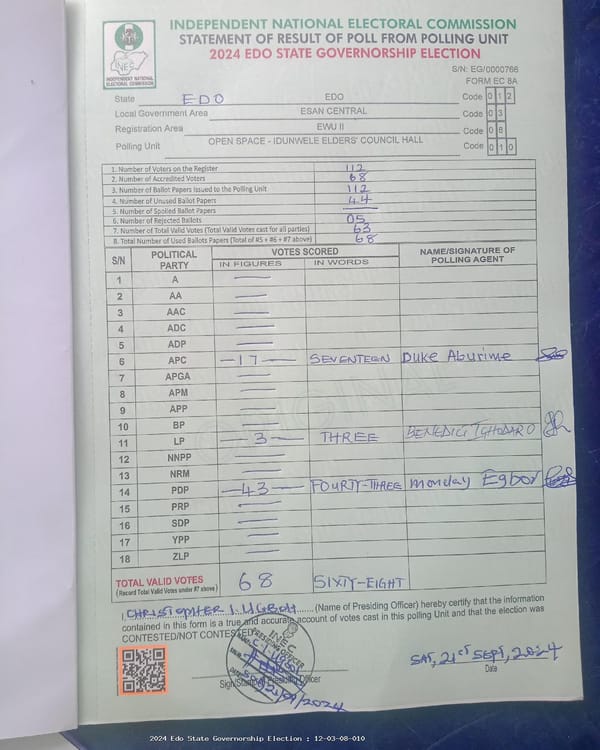 INDEPENDENT NATIONAL ELECTORAL COMMISSION
STATEMENT OF RESULT OF POLL FROM POLLING UNIT
2024 EDO STATE GOVERNORSHIP ELECTION
INEC
INDEPENDENT NATIONAL ELECTORAL COMMISSION
S/N: EG/0000766
FORM EC 8A
State EDO EDO Code 0 1 2
Local Government Area ESAN CENTRAL Code 0 3
Registration Area EWU II Code 0 8
Polling Unit OPEN SPACE - IDUNWELE ELDERS' COUNCIL HALL Code 0 1 0
1. Number of Voters on the Register 112
2. Number of Accredited Voters 68
3. Number of Ballot Papers Issued to the Polling Unit 112
4. Number of Unused Ballot Papers 44
5. Number of Spoiled Ballot Papers —
6. Number of Rejected Ballots 05
7. Number of Total Valid Votes (Total Valid Votes cast for all parties) 63
8. Total Number of Used Ballots Papers (Total of #5 + #6 + #7 above) 68
S/N POLITICAL PARTY VOTES SCORED NAME/SIGNATURE OF POLLING AGENT
IN FIGURES IN WORDS
1 A —
2 AA —
3 AAC —
4 ADC —
5 ADP —
6 APC —17— SEVENTEEN Duke Aburime
7 APGA —
8 APM —
9 APP —
10 BP —
11 LP —3— THREE BENEDICT IGHODARO
12 NNPP —
13 NRM —
14 PDP —43— FOURTY-THREE Monday Egbor
15 PRP —
16 SDP —
17 YPP —
18 ZLP —
TOTAL VALID VOTES 68 SIXTY-EIGHT
(Record Total Valid Votes under #7 above)
I, CHRISTOPHER I. UGBOH (Name of Presiding Officer) hereby certify that the information
contained in this form is a true and accurate account of votes cast in this polling Unit and that the election was
CONTESTED/NOT CONTESTED
INEC
PRESIDING OFFICER
21/09/2024
Sign/Stamp of Presiding Officer
SAT, 21ST SEPT, 2024
Date
2024 Edo State Governorship Election : 12-03-08-010